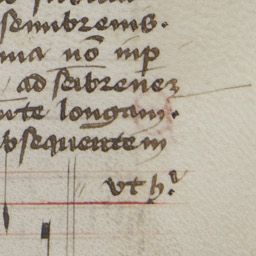 semibreuis.
ma nō inp
ad seibreuez
nte longam.
bsequentem
vt hͥ.